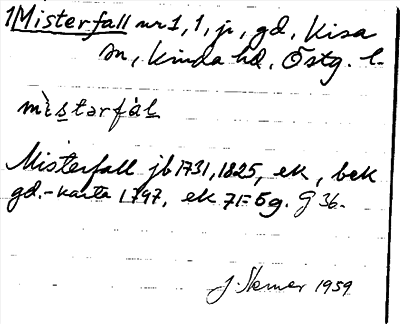 1 Misterfall nr 1, 1, jr, gd, Kisa
sn, Kinda hd, Östg. l.
mìstərfàl
Misterfall jb 1731, 1825, ek, bek
gd.-karta 1797, ek 71=5g. G 36.
J. Stemer 1959